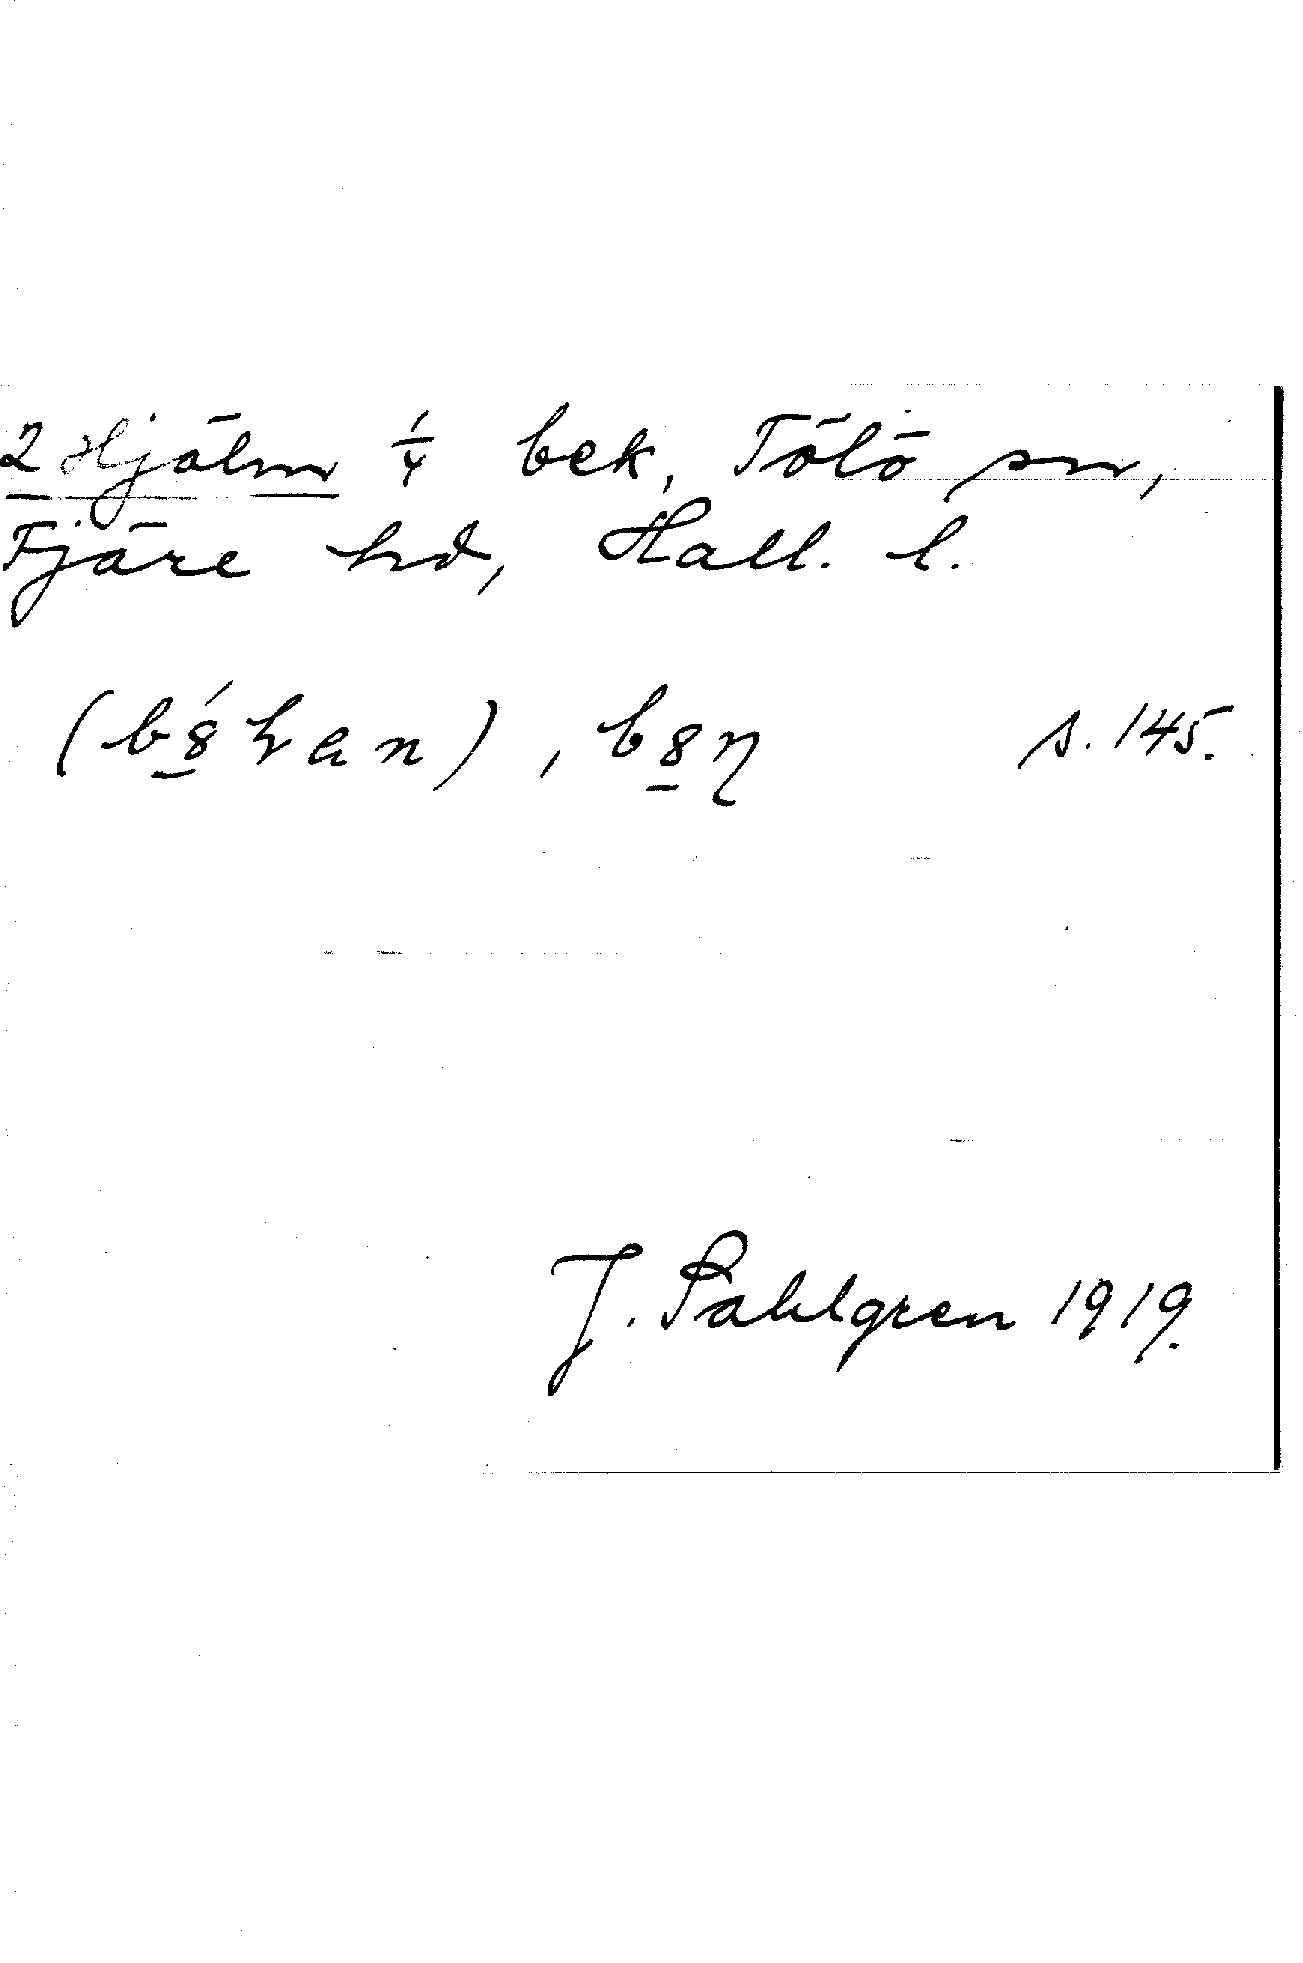 2 Hjälm ¼ bek, Tölö sn,
Fjäre hd, Hall. l.
(b8́han), b8ŋ s. 145.
J. Sahlgren 1919.